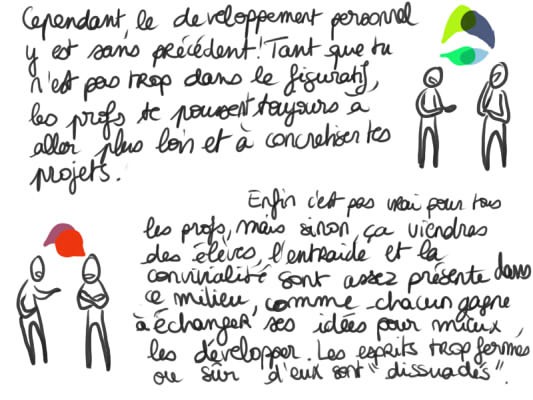 Cependant, le developpement personnel
y est sans précédent! Tant que tu
n'est pas trop dans le figuratif,
les profs te poussent toujours à
aller plus loin et à concretiser tes
projets.
Enfin c'est pas vrai pour tous
les profs, mais sinon, ça viendras
des élèves, l'entraide et la
convivialité sont assez présente dans
ce milieu, comme chacun gagne
à échanger ses idées pour mieux
les développer. Les esprits trop fermés
ou sûr d'eux sont "dissuadés".